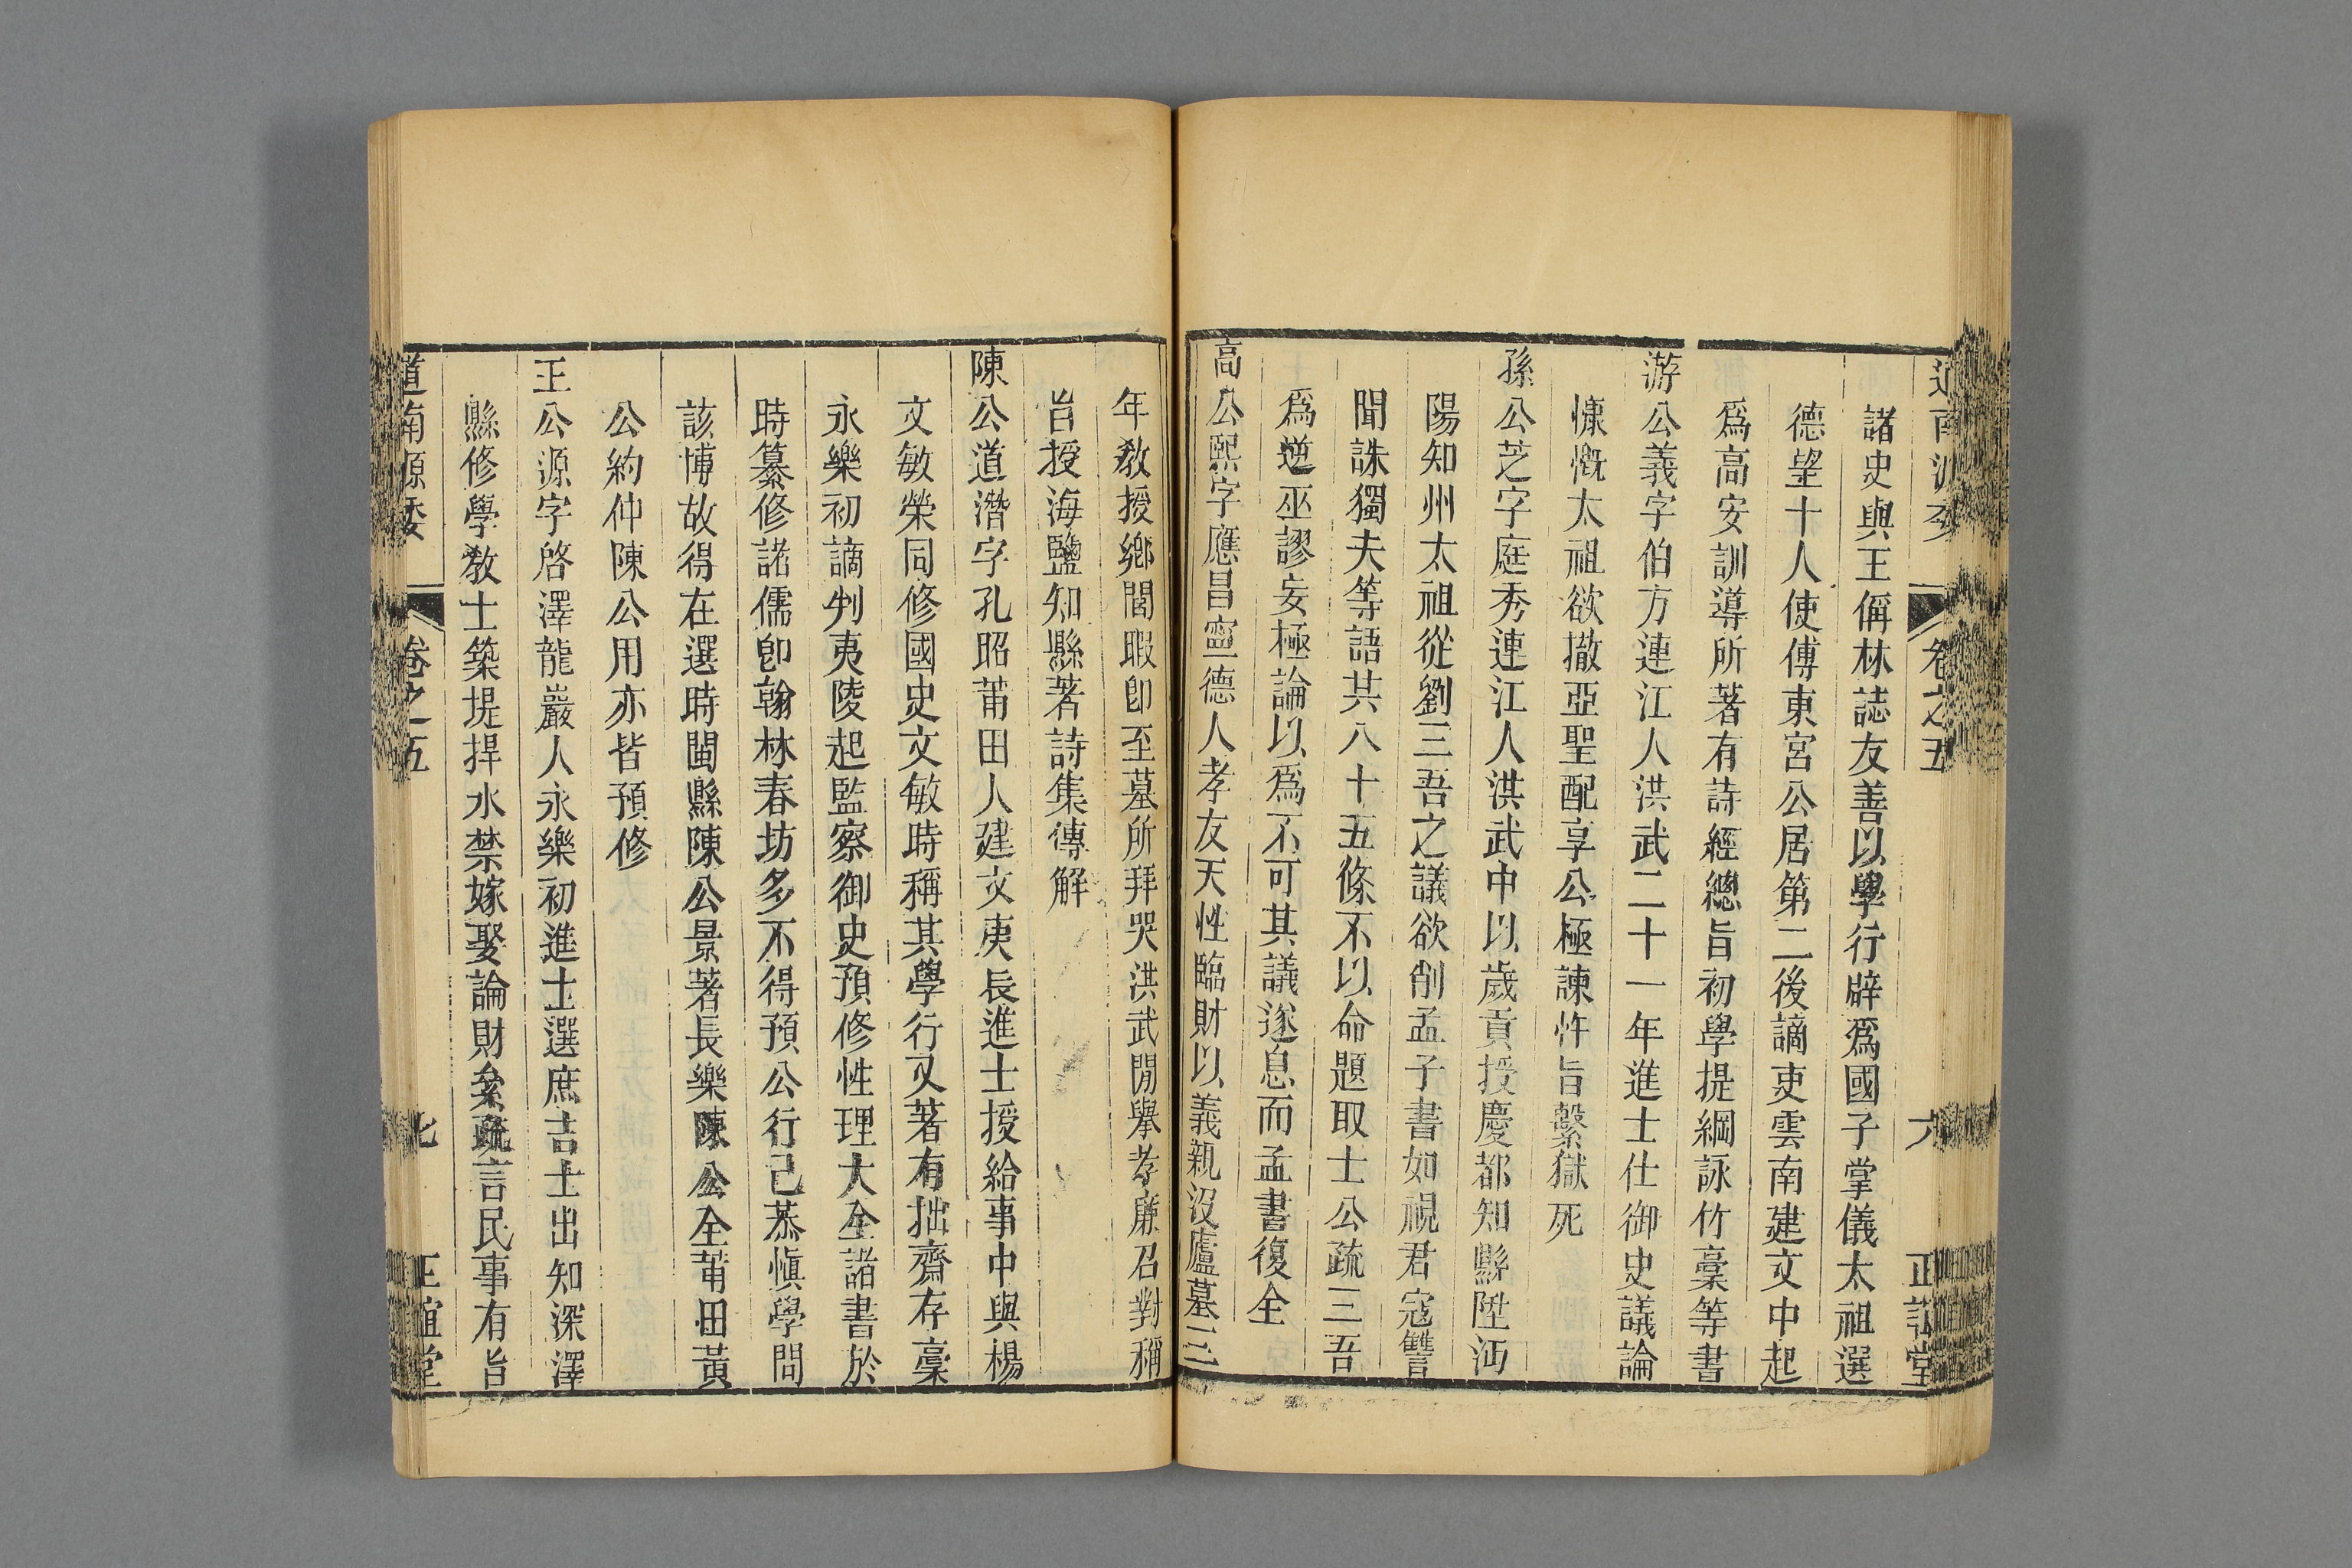 道南源委 卷之五 六 正誼堂
諸史與王偁林誌友善以學行辟爲國子掌儀太祖選
德望十人使傅東宮公居第二後謫吏雲南建文中起
爲高安訓導所著有詩經總旨初學提綱詠竹稾等書
游公義字伯方連江人洪武二十一年進士仕御史議論
慷慨太祖欲撤亞聖配享公極諫忤旨繫獄死
孫公芝字庭秀連江人洪武中以歲貢授慶都知縣陞沔
陽知州太祖從劉三吾之議欲削孟子書如視君寇讐
聞誅獨夫等語共八十五條不以命題取士公疏三吾
爲逆巫謬妄極論以爲不可其議遂息而孟書復全
高公熙字應昌寧德人孝友天性臨財以義親沒廬墓三
年教授鄉閭暇卽至墓所拜哭洪武閒擧孝廉召對稱
旨授海鹽知縣著詩集傳解
陳公道潛字孔昭莆田人建文庚辰進士授給事中與楊
文敏榮同修國史文敏時稱其學行又著有拙齋存稾
永樂初謫判夷陵起監察御史預修性理大全諸書於
時纂修諸儒卽翰林春坊多不得預公行己恭愼學問
該博故得在選時閩縣陳公景著長樂陳公全莆田黃
公約仲陳公用亦皆預修
王公源字啓澤龍巖人永樂初進士選庶吉士出知深澤
縣修學敎士築堤捍水禁嫁娶論財條疏言民事有旨
道南源委 卷之五 七 正誼堂